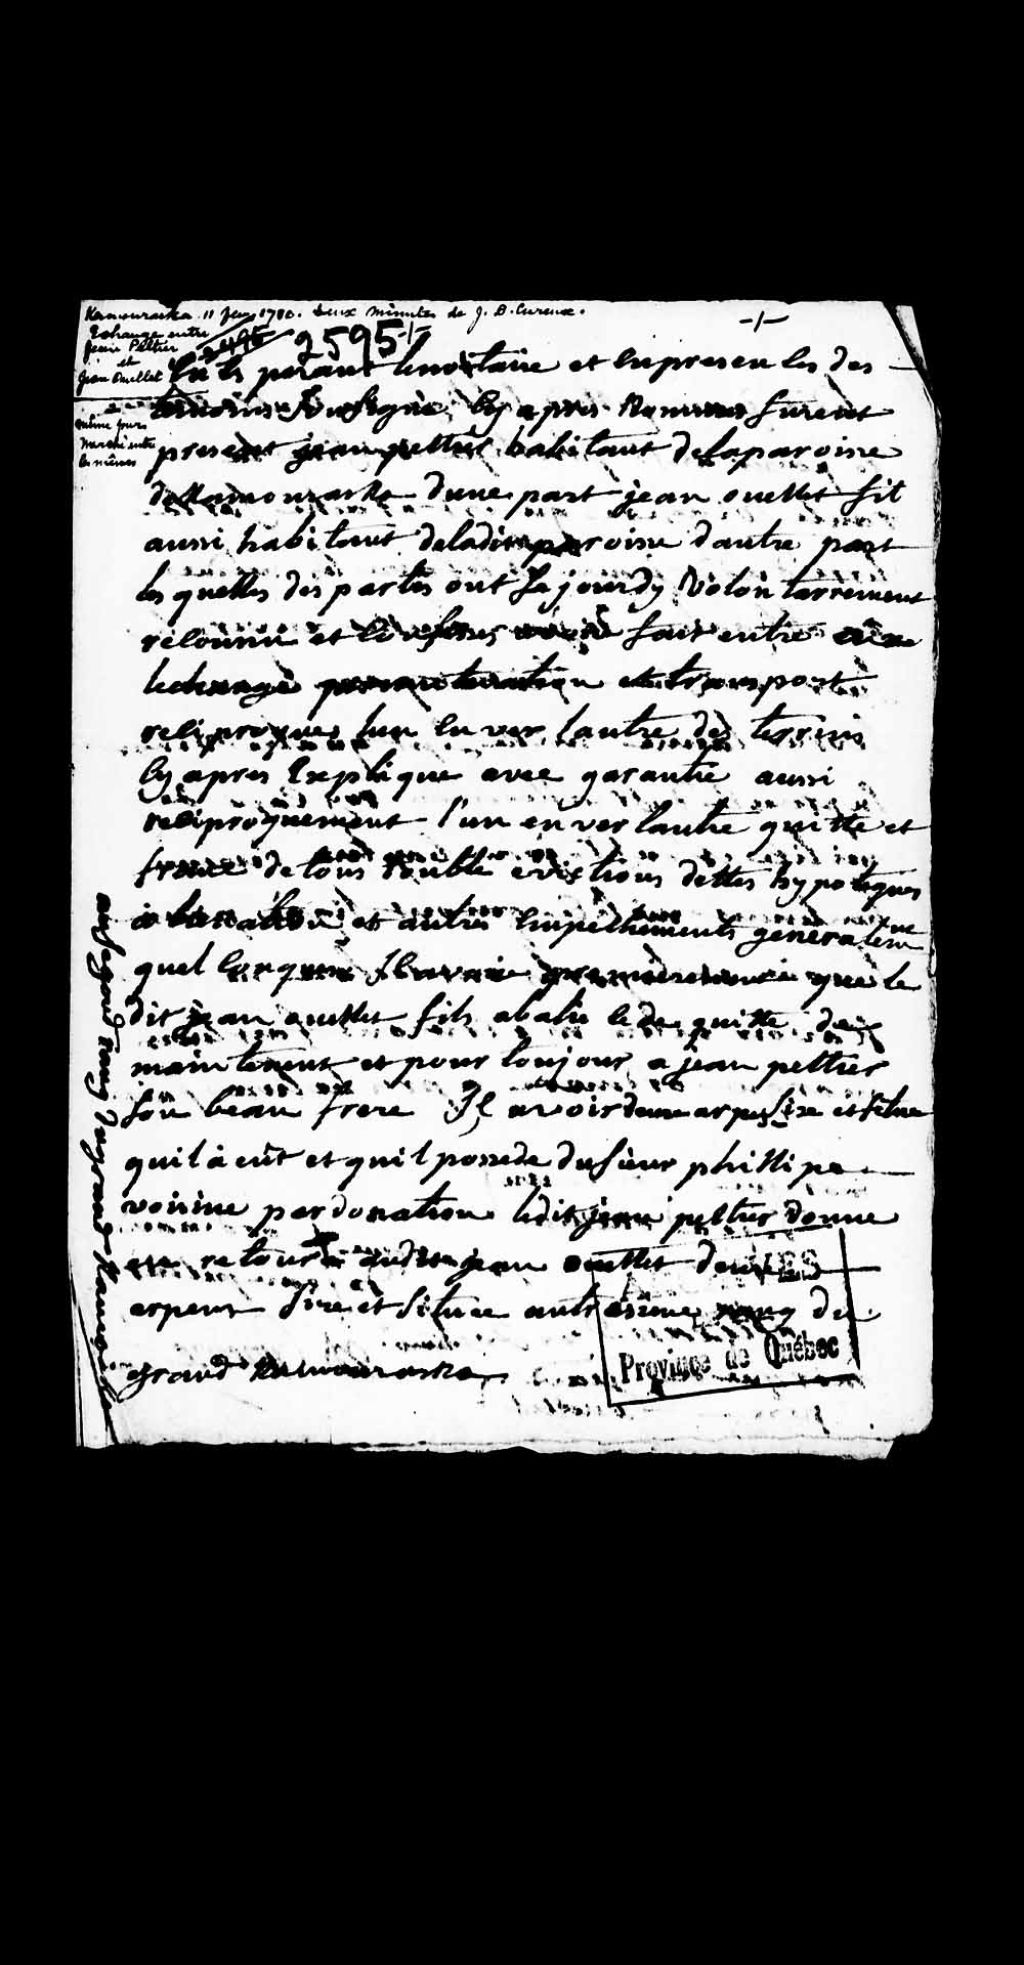 Kamouraska 11 Janv 1780. Deux minutes de J. B. Cureux.
Echange entre
Jean Peltier
et
Jean Ouellet
même jour
Marché entre
les mêmes
2595
-/-
-/-
parant lenotaire et enpresen les des
temoins Sousigné cy apres furent
present jean peltier habitant delaparoisse
dekamouraska dune part jean ouellet fil
aussi habitant deladite paroisse dautre part
les quelles des parties ont Se jourdy Volontairement
et fait entre
et transport
reciproques lun en ver lautre des terrins
cy apres Explique avec garantie aussi
reciproquement l'un en ver lautre quitte et
franc de tous trouble evictions dettes hypoteques
et autres Empechements generalem
quel conques Scavoir que le
dit jean ouellet fils cede quitte des
maintenent et pour toujour a jean peltier
Son beau frere arpen Size et situe
quil a eüt et quil possede du Sieur phillipe
voisine par donation ledit jean peltier donne
en retour audit jean ouellet deux
arpent Size et Situee aut rang du
grand Kamouraska
au Segond rang du grand Kamouraska
Province de Québec